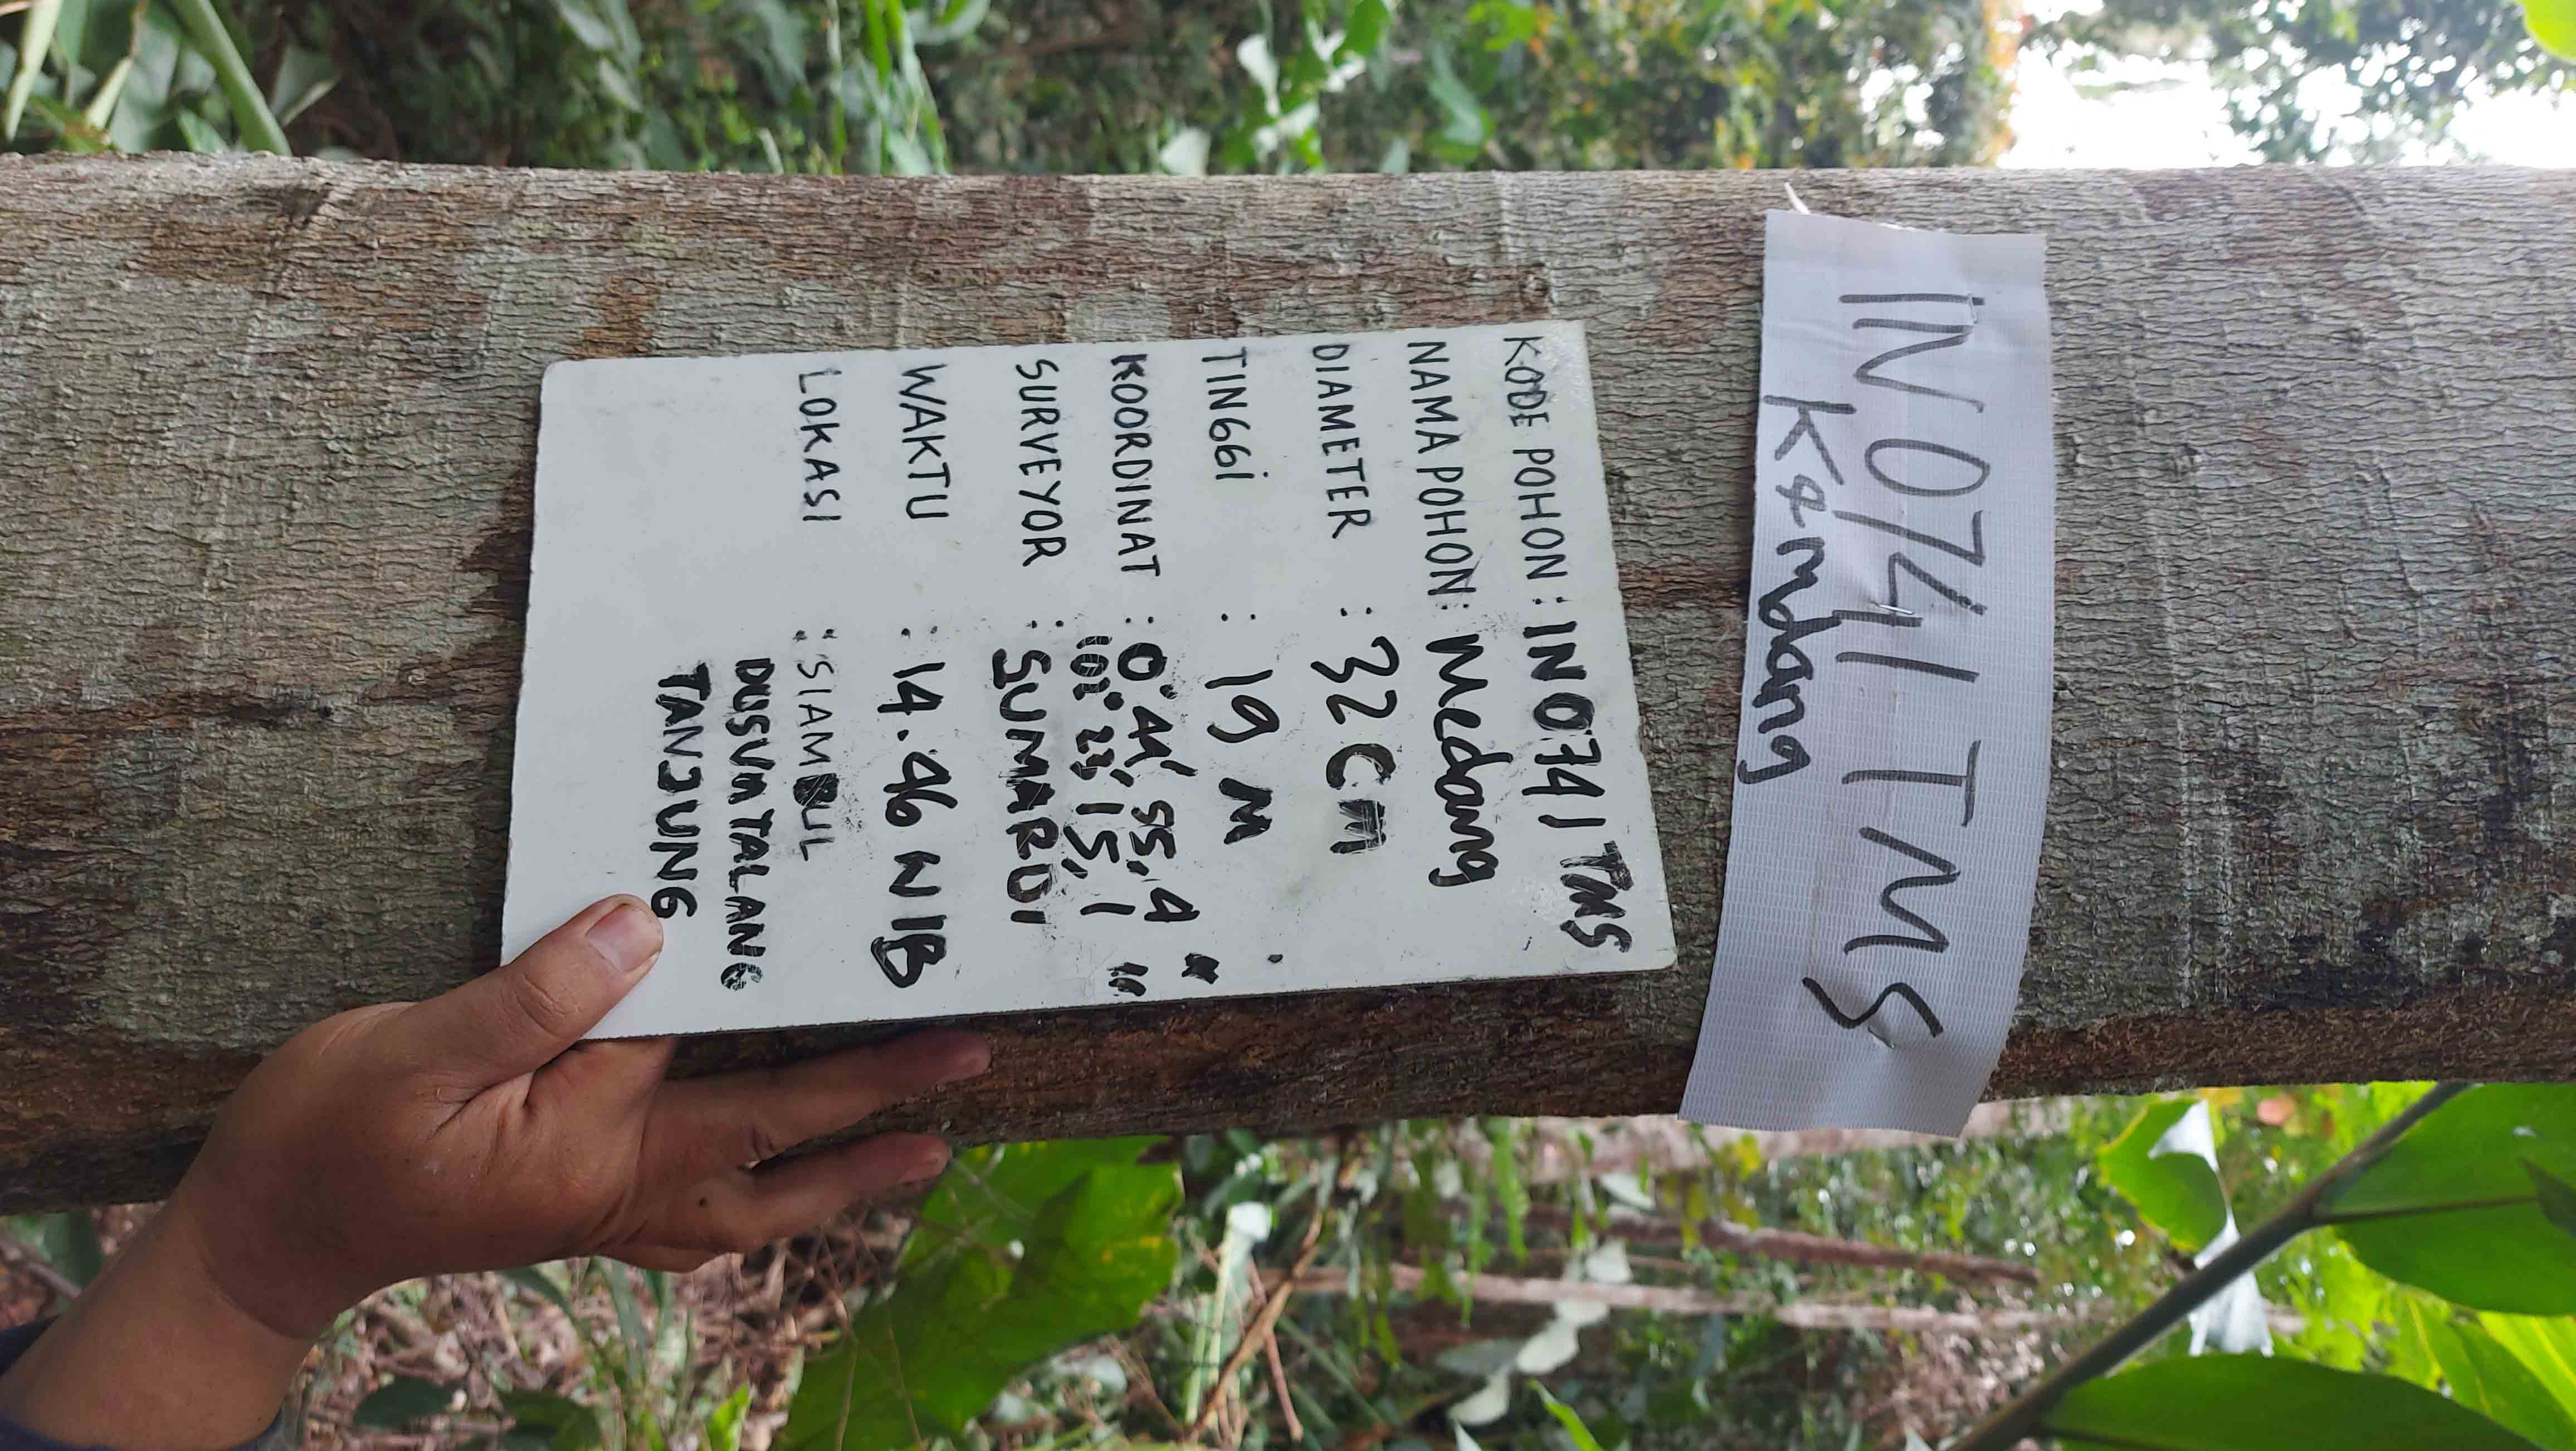 IN 0741 TMS
Kendang
KODE POHON : IN 0741 TMS
NAMA POHON : Medang
DIAMETER : 32 CM
TINGGI : 19 M
KOORDINAT : 0° 44', 55, 4 "
102° 23' 15, 1 "
SURVEYOR : SUMARDI
WAKTU : 14.46 WIB
LOKASI : SIAMBUL
DUSUN TALANG
TANJUNG